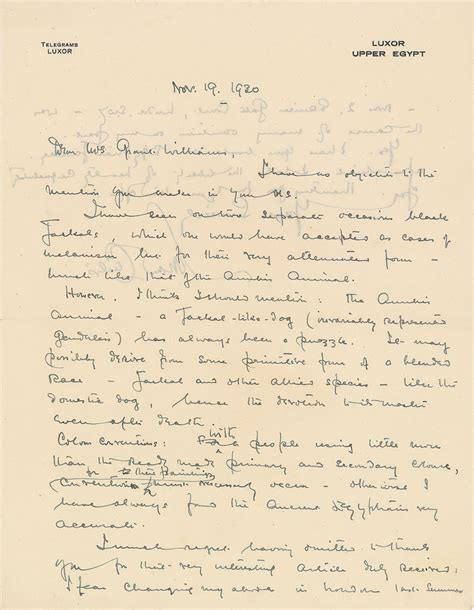 TELEGRAMS
LUXOR
LUXOR
UPPER EGYPT
Nov. 19. 1920
Dear Mrs Grant-Williams,
I have no objection to the
mention you make in your MS.
I have seen on two separate occasion black
Jackals, which one would have accepted as cases of
melanism but for their very attenuated form –
much like that of the Anubis Animal.
However, I think I should mention: the Anubis
Animal – a Jackal-like-dog (invariably represented
gandless) has always been a puzzle. It may
possibly derive from some primitive form of a blended
Race – Jackal and other allied species – like the
domestic dog, hence the devotion to its master
even after death.
Colour conventions: with a people using little more
than the ready made primary and secondary colours,
for to their paintings
conventions must necessarily occur – otherwise I
have always found the Ancient Egyptians very
accurate.
I much regret having omitted to thank
you for that very interesting article duly received:
I fear changing my abode in London last Summer